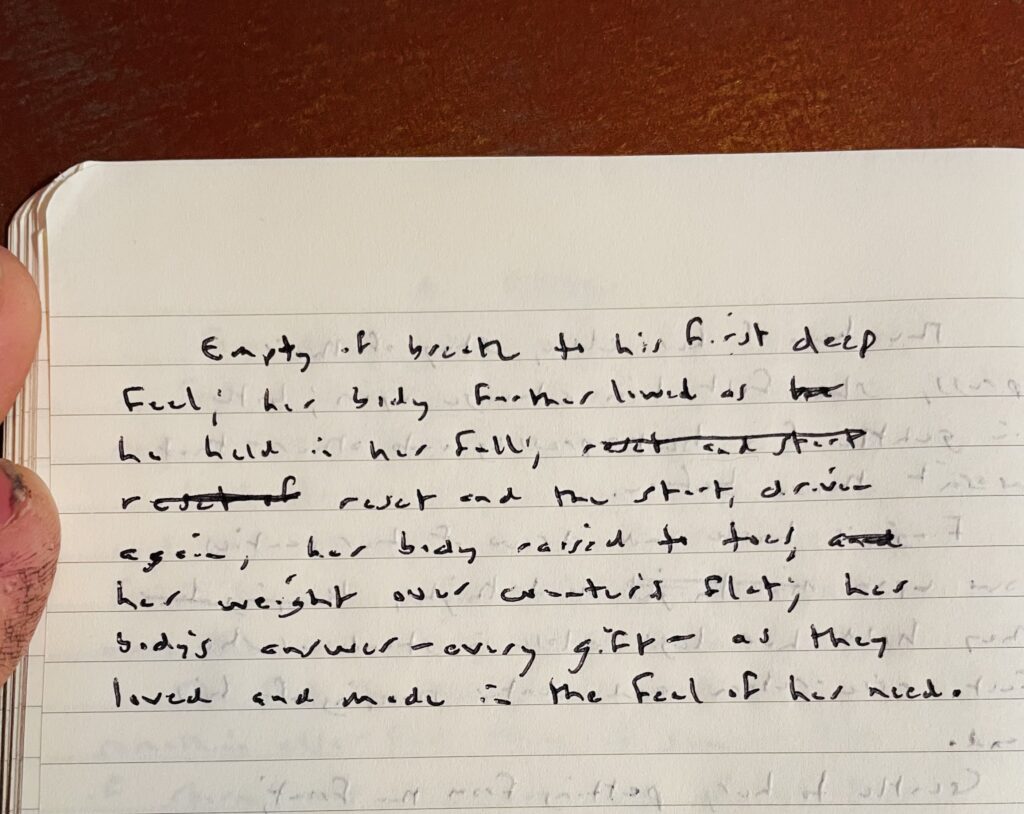 Empty of breath to his first deep
feel; her body further lowed as he
he held in her fall; reset and start
reset of reset and the start, driven
again, her body raised to toes, and
her weight over counter's flat; her
body's answer – every gift – as they
loved and made in the feel of her need.